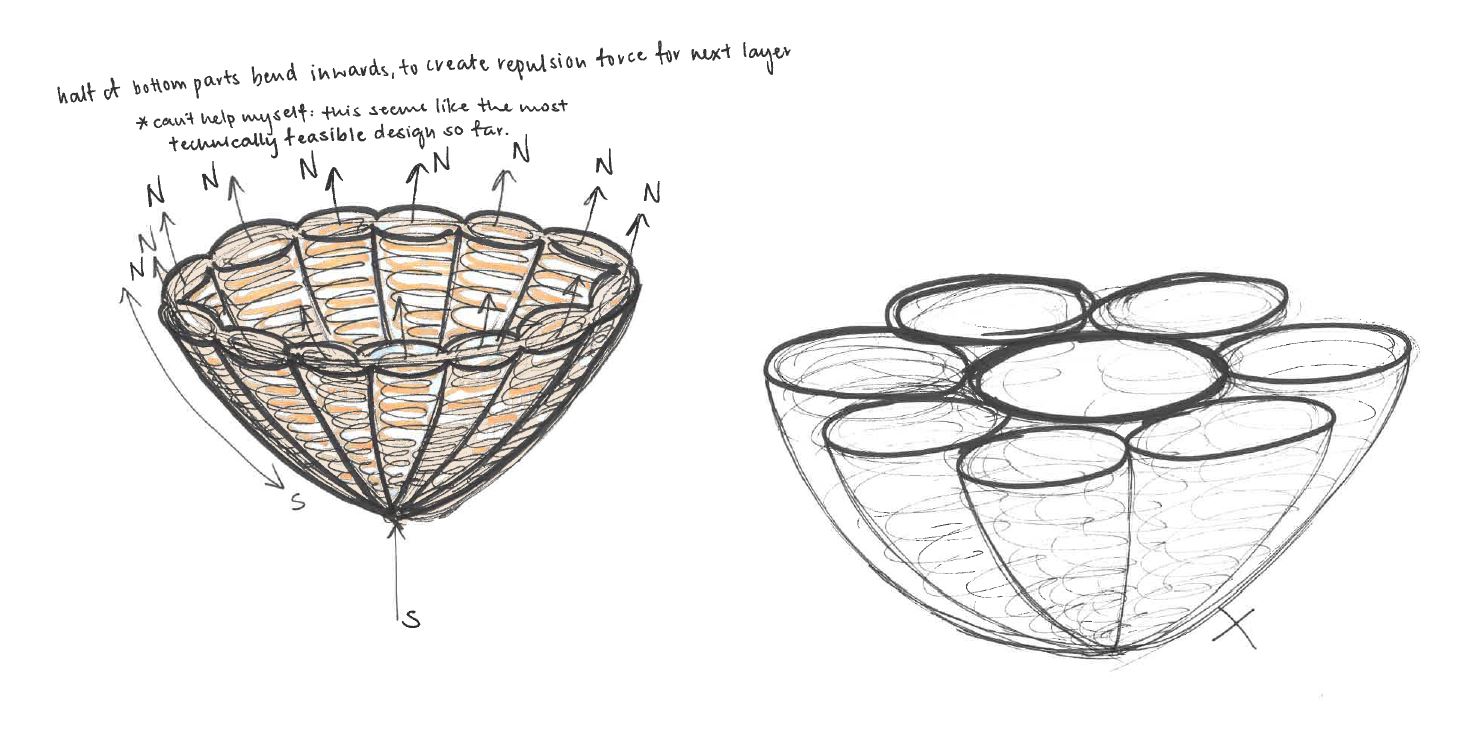 half of bottom parts bend inwards, to create repulsion force for next layer
* can't help myself: this seems like the most
technically feasible design so far.
N
N
N
N
N
N
N
N
N
S
S